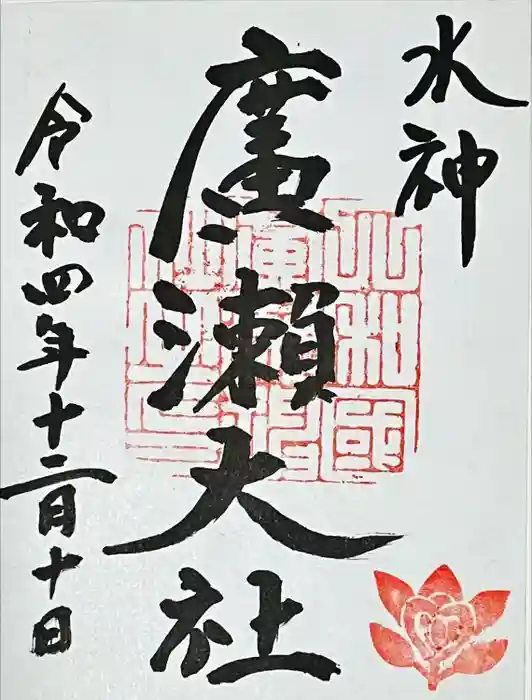 水神
廣瀬大社
令和四年十二月十日